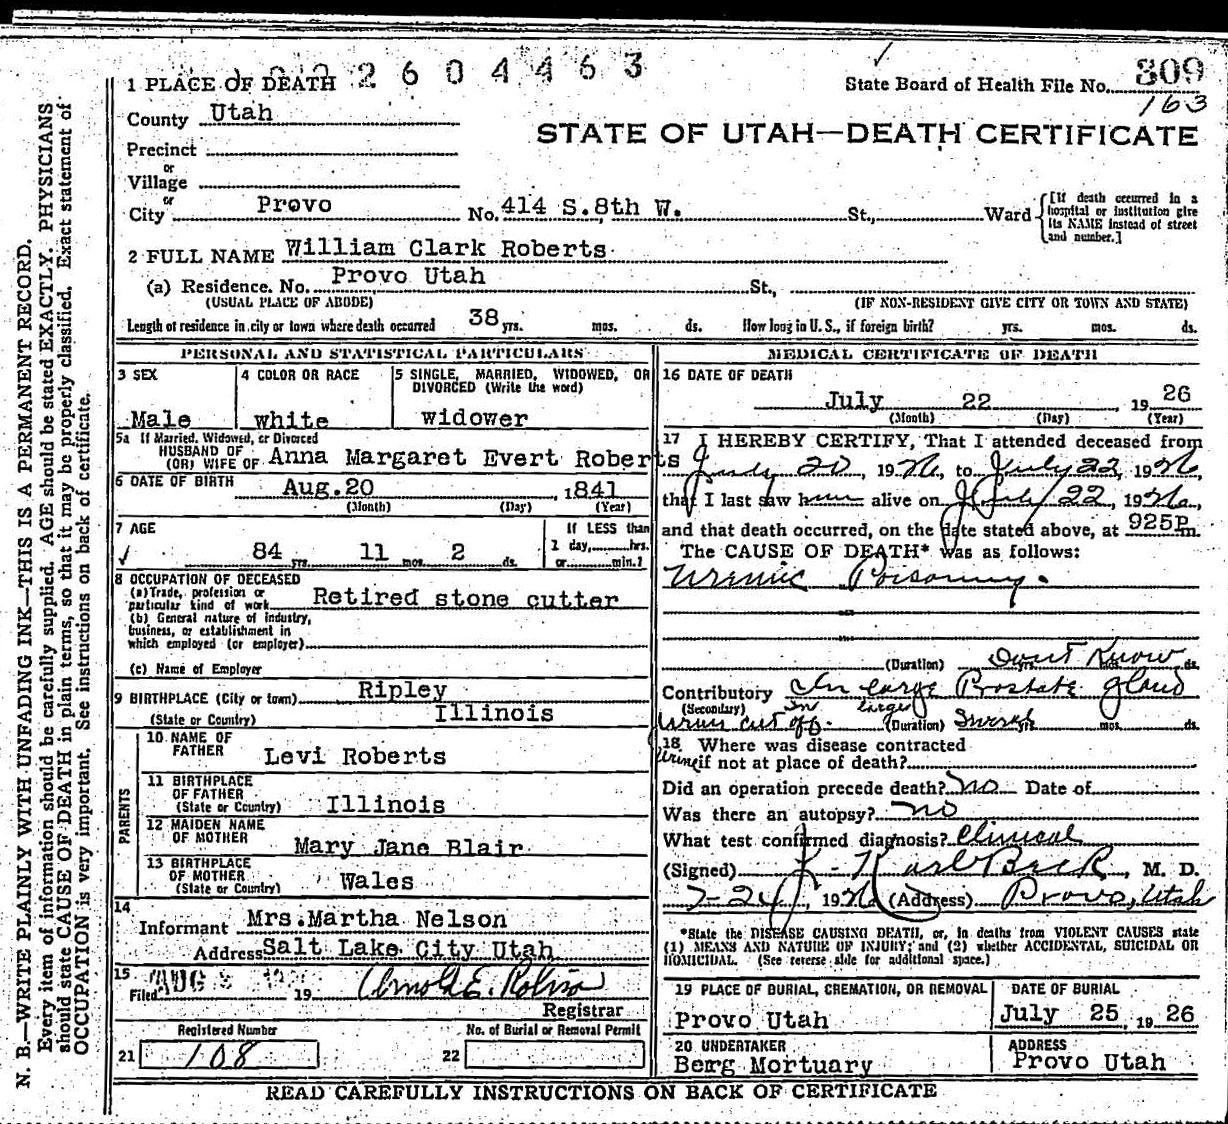 2604463
1 PLACE OF DEATH
State Board of Health File No. 309
163
County Utah
STATE OF UTAH—DEATH CERTIFICATE
Precinct
or
Village
or
City Provo No. 414 S.8th W. St., Ward
[If death occurred in a hospital or institution give its NAME instead of street and number.]
2 FULL NAME William Clark Roberts
(a) Residence. No. Provo Utah St.,
(USUAL PLACE OF ABODE) (IF NON-RESIDENT GIVE CITY OR TOWN AND STATE)
Length of residence in city or town where death occurred 38 yrs. mos. ds. How long in U. S., if foreign birth? yrs. mos. ds.
PERSONAL AND STATISTICAL PARTICULARS
3 SEX
Male
4 COLOR OR RACE
white
5 SINGLE, MARRIED, WIDOWED, OR
DIVORCED (Write the word)
widower
5a If Married, Widowed, or Divorced
HUSBAND OF
(OR) WIFE OF Anna Margaret Evert Roberts
6 DATE OF BIRTH Aug.20 , 1841
(Month) (Day) (Year)
7 AGE
84 yrs. 11 mos. 2 ds.
If LESS than
1 day, hrs.
or min.?
8 OCCUPATION OF DECEASED
(a) Trade, profession or
particular kind of work Retired stone cutter
(b) General nature of industry,
business, or establishment in
which employed (or employer)
(c) Name of Employer
9 BIRTHPLACE (City or town) Ripley
(State or Country) Illinois
PARENTS
10 NAME OF
FATHER Levi Roberts
11 BIRTHPLACE
OF FATHER
(State or Country) Illinois
12 MAIDEN NAME
OF MOTHER Mary Jane Blair
13 BIRTHPLACE
OF MOTHER
(State or Country) Wales
14
Informant Mrs.Martha Nelson
Address Salt Lake City Utah
15
Filed AUG 19 Arnold E. Robison
Registrar
Registered Number No. of Burial or Removal Permit
21 108 22
MEDICAL CERTIFICATE OF DEATH
16 DATE OF DEATH
July 22 , 19 26
(Month) (Day) (Year)
17 I HEREBY CERTIFY, That I attended deceased from
July 20 1926, to July 22, 1926,
that I last saw him alive on July 22, 1926,
and that death occurred, on the date stated above, at 925P m.
The CAUSE OF DEATH* was as follows:
Uremic Poisoning.
(Duration) Dont Know ds.
Contributory In large Prostate gland
(Secondary)
cut off. (Duration) mos. ds.
18 Where was disease contracted
if not at place of death?
Did an operation precede death? no Date of
Was there an autopsy? no
What test confirmed diagnosis? Clinical
(Signed) L. Karl Beck, M. D.
7-24, 1926 (Address) Provo, Utah
*State the DISEASE CAUSING DEATH, or, in deaths from VIOLENT CAUSES state
(1) MEANS AND NATURE OF INJURY; and (2) whether ACCIDENTAL, SUICIDAL OR
HOMICIDAL. (See reverse side for additional space.)
19 PLACE OF BURIAL, CREMATION, OR REMOVAL
Provo Utah
DATE OF BURIAL
July 25, 19 26
20 UNDERTAKER
Berg Mortuary
ADDRESS
Provo Utah
READ CAREFULLY INSTRUCTIONS ON BACK OF CERTIFICATE
N. B.—WRITE PLAINLY WITH UNFADING INK—THIS IS A PERMANENT RECORD.
Every item of information should be carefully supplied. AGE should be stated EXACTLY. PHYSICIANS
should state CAUSE OF DEATH in plain terms, so that it may be properly classified. Exact statement of
OCCUPATION is very important. See instructions on back of certificate.